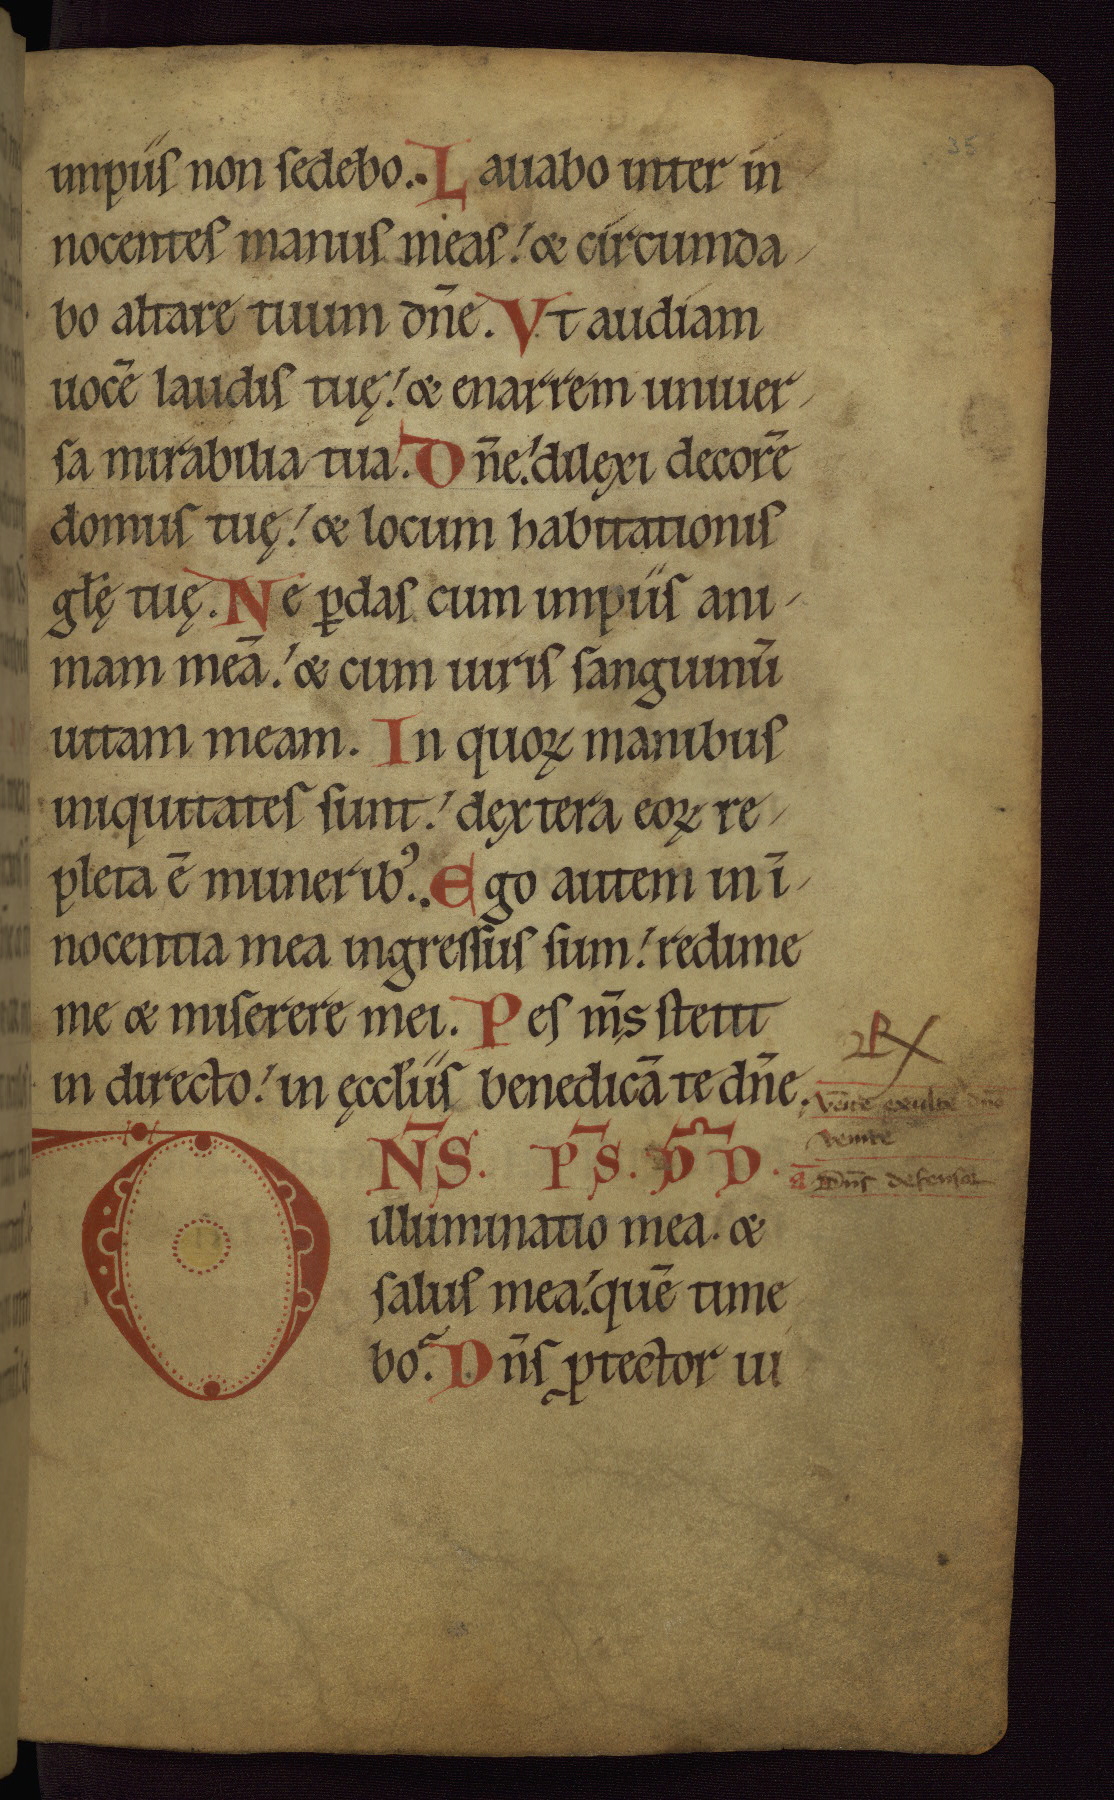 35
impiis non sedebo. Lauabo inter in
nocentes manus meas: & circumda-
bo altare tuum dn̄e. Vt audiam
uocē laudis tuę: & enarrem uniuer-
sa mirabilia tua. Dn̄e: dilexi decorē
domus tuę: & locum habitationis
glę̄ tuę. Ne ꝑdas cum impiis ani-
mam meā: & cum uiris sanguinū
uitam meam. In quoꝝ manibus
iniquitates sunt: dextera eoꝝ re-
pleta ē munerib᾿. Ego autem in ī-
nocentia mea ingressus sum: redime
me & miserere mei. Pes m̄s stetit
in directo: in ęccl̄iis benedicā te dn̄e.
Venite exulte dn̄o
venite
a Dn̄s defensor
DN̄S. P̄S. DD̄.
illuminatio mea. &
salus mea: quē time
bo? Dn̄s ꝓtector ui